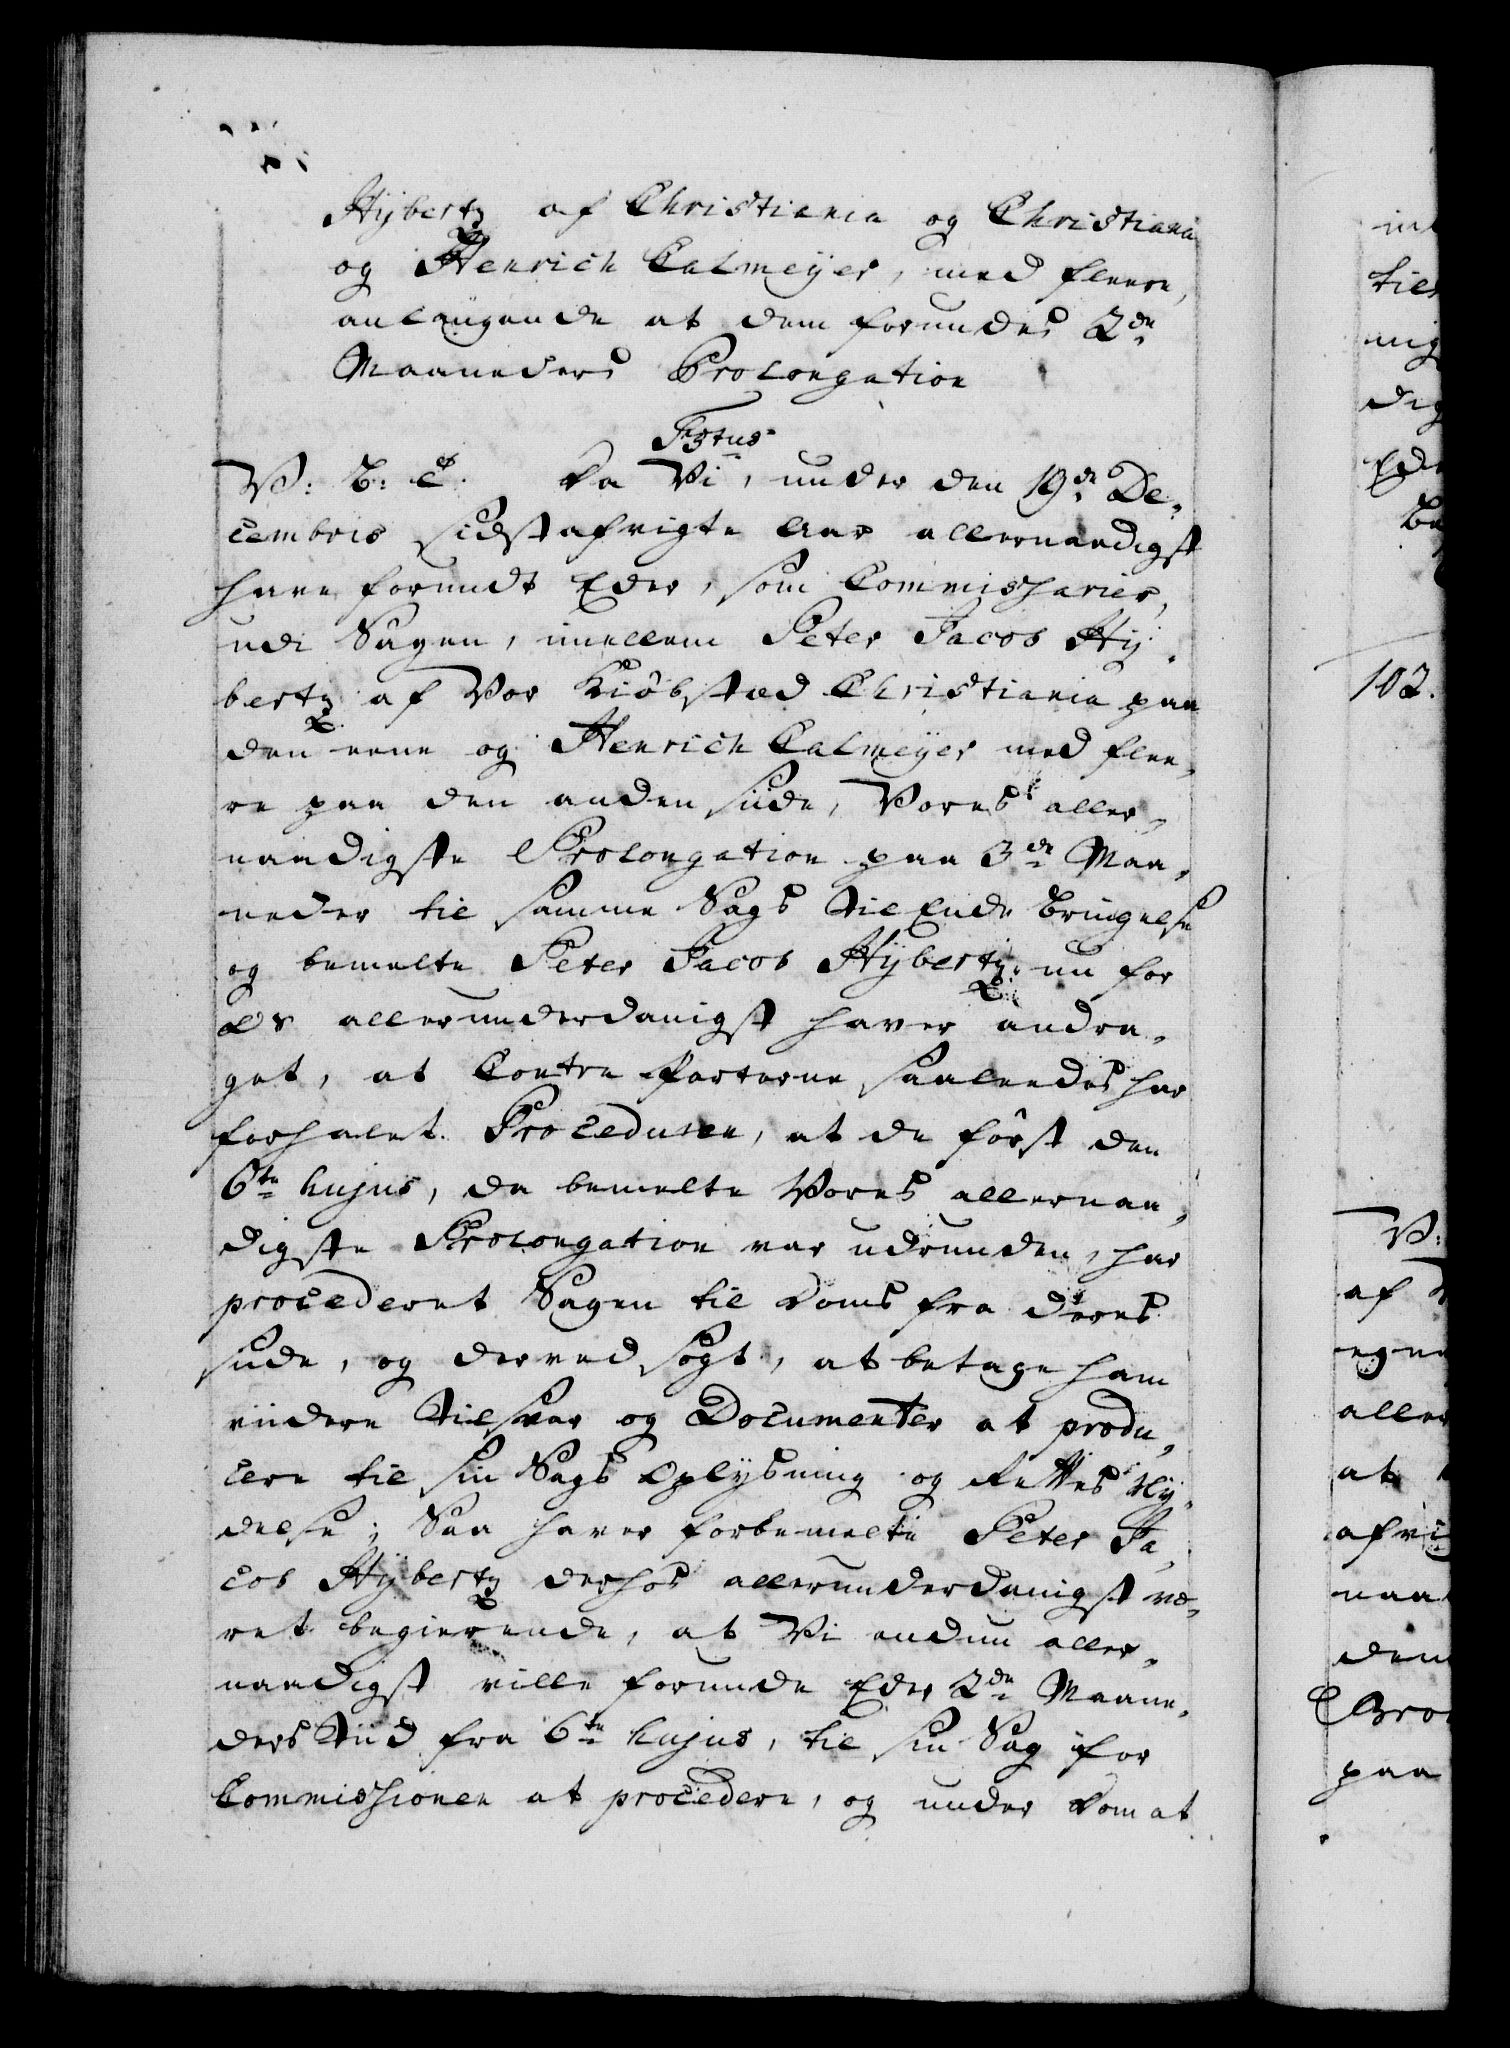 Hÿbertz af Christiania og Christiania
og Henrich Calmeÿer, med fleere,
anlangende at dem forundes 2de
Maaneders Prolongation
Fr5tus
V: B: T. Da Vi, under den 19de De,
cembris sidstafvigte Aar allernaadigst
have forundt Eder, som Commissharier,
udi Sagen, imellem Peter Jacob Hÿ,
bertz af Vor Kiöbstæd Christiania paa
den eene og Henrich Calmeÿer med flee,
re paa den anden siide, Vores aller,
naadigste Prolongation paa 3de Maa,
neder til samme Sags til Ende bringelse
og bemelte Peter Jacob Hÿbertz nu for
Os allerunderdanigst haver andra,
get, at Contra Parterne saaleedes har
forhalet Proceduren, at de först den
6te hujus, da bemelte Vores allernaa,
digste Prolongation var udrunden, har
procederet Sagen til Doms fra deres
siide, og derved sögt, at betage ham
viidere Tilsvar og Documenter at produ,
cere til sin Sags Oplÿsning og Rettes Nÿ,
delse; Saa haver forbemelte Peter Ja,
cob Hÿbertz derhos allerunderdanigst væ,
ret begierende, at Vi endnu aller,
naadigst ville forunde Eder 2de Maane,
ders Tiid fra 6te hujus, til sin Sag for
Commisshionen at procedere, og under Dom at
102.